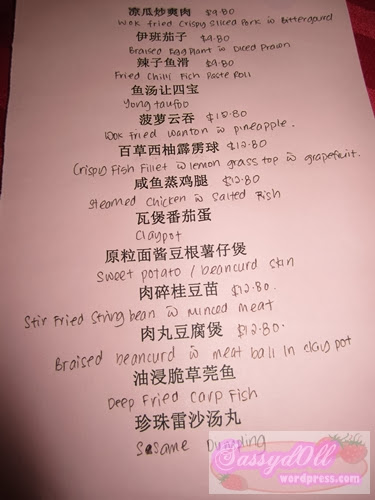 凉瓜炒爽肉 $9.80
Wok fried Crispy Sliced Pork w Bittergourd
伊班茄子 $9.80
Braised Eggplant w Diced Prawn
辣子鱼滑 $9.80
Fried Chilli Fish Paste Roll
鱼汤让四宝
Yong taufoo
菠萝云吞 $10.80
Wok Fried Wanton w pineapple.
百草西柚霹雳球 $12.80
Crispy Fish Fillet w lemon grass top w grapefruit.
咸鱼蒸鸡腿 $12.80
Steamed Chicken w Salted Fish
瓦煲番茄蛋
Claypot
原粒面酱豆根薯仔煲
Sweet potato / beancurd skin
肉碎桂豆苗 $12.80.
Stir Fried String bean w Minced meat
肉丸豆腐煲 $12.80.
Braised beancurd w meat ball In clay pot
油浸脆草莞鱼
Deep Fried Carp Fish
珍珠雷沙汤丸
Sesame Dumpling
Sassyd0ll
wordpress.com